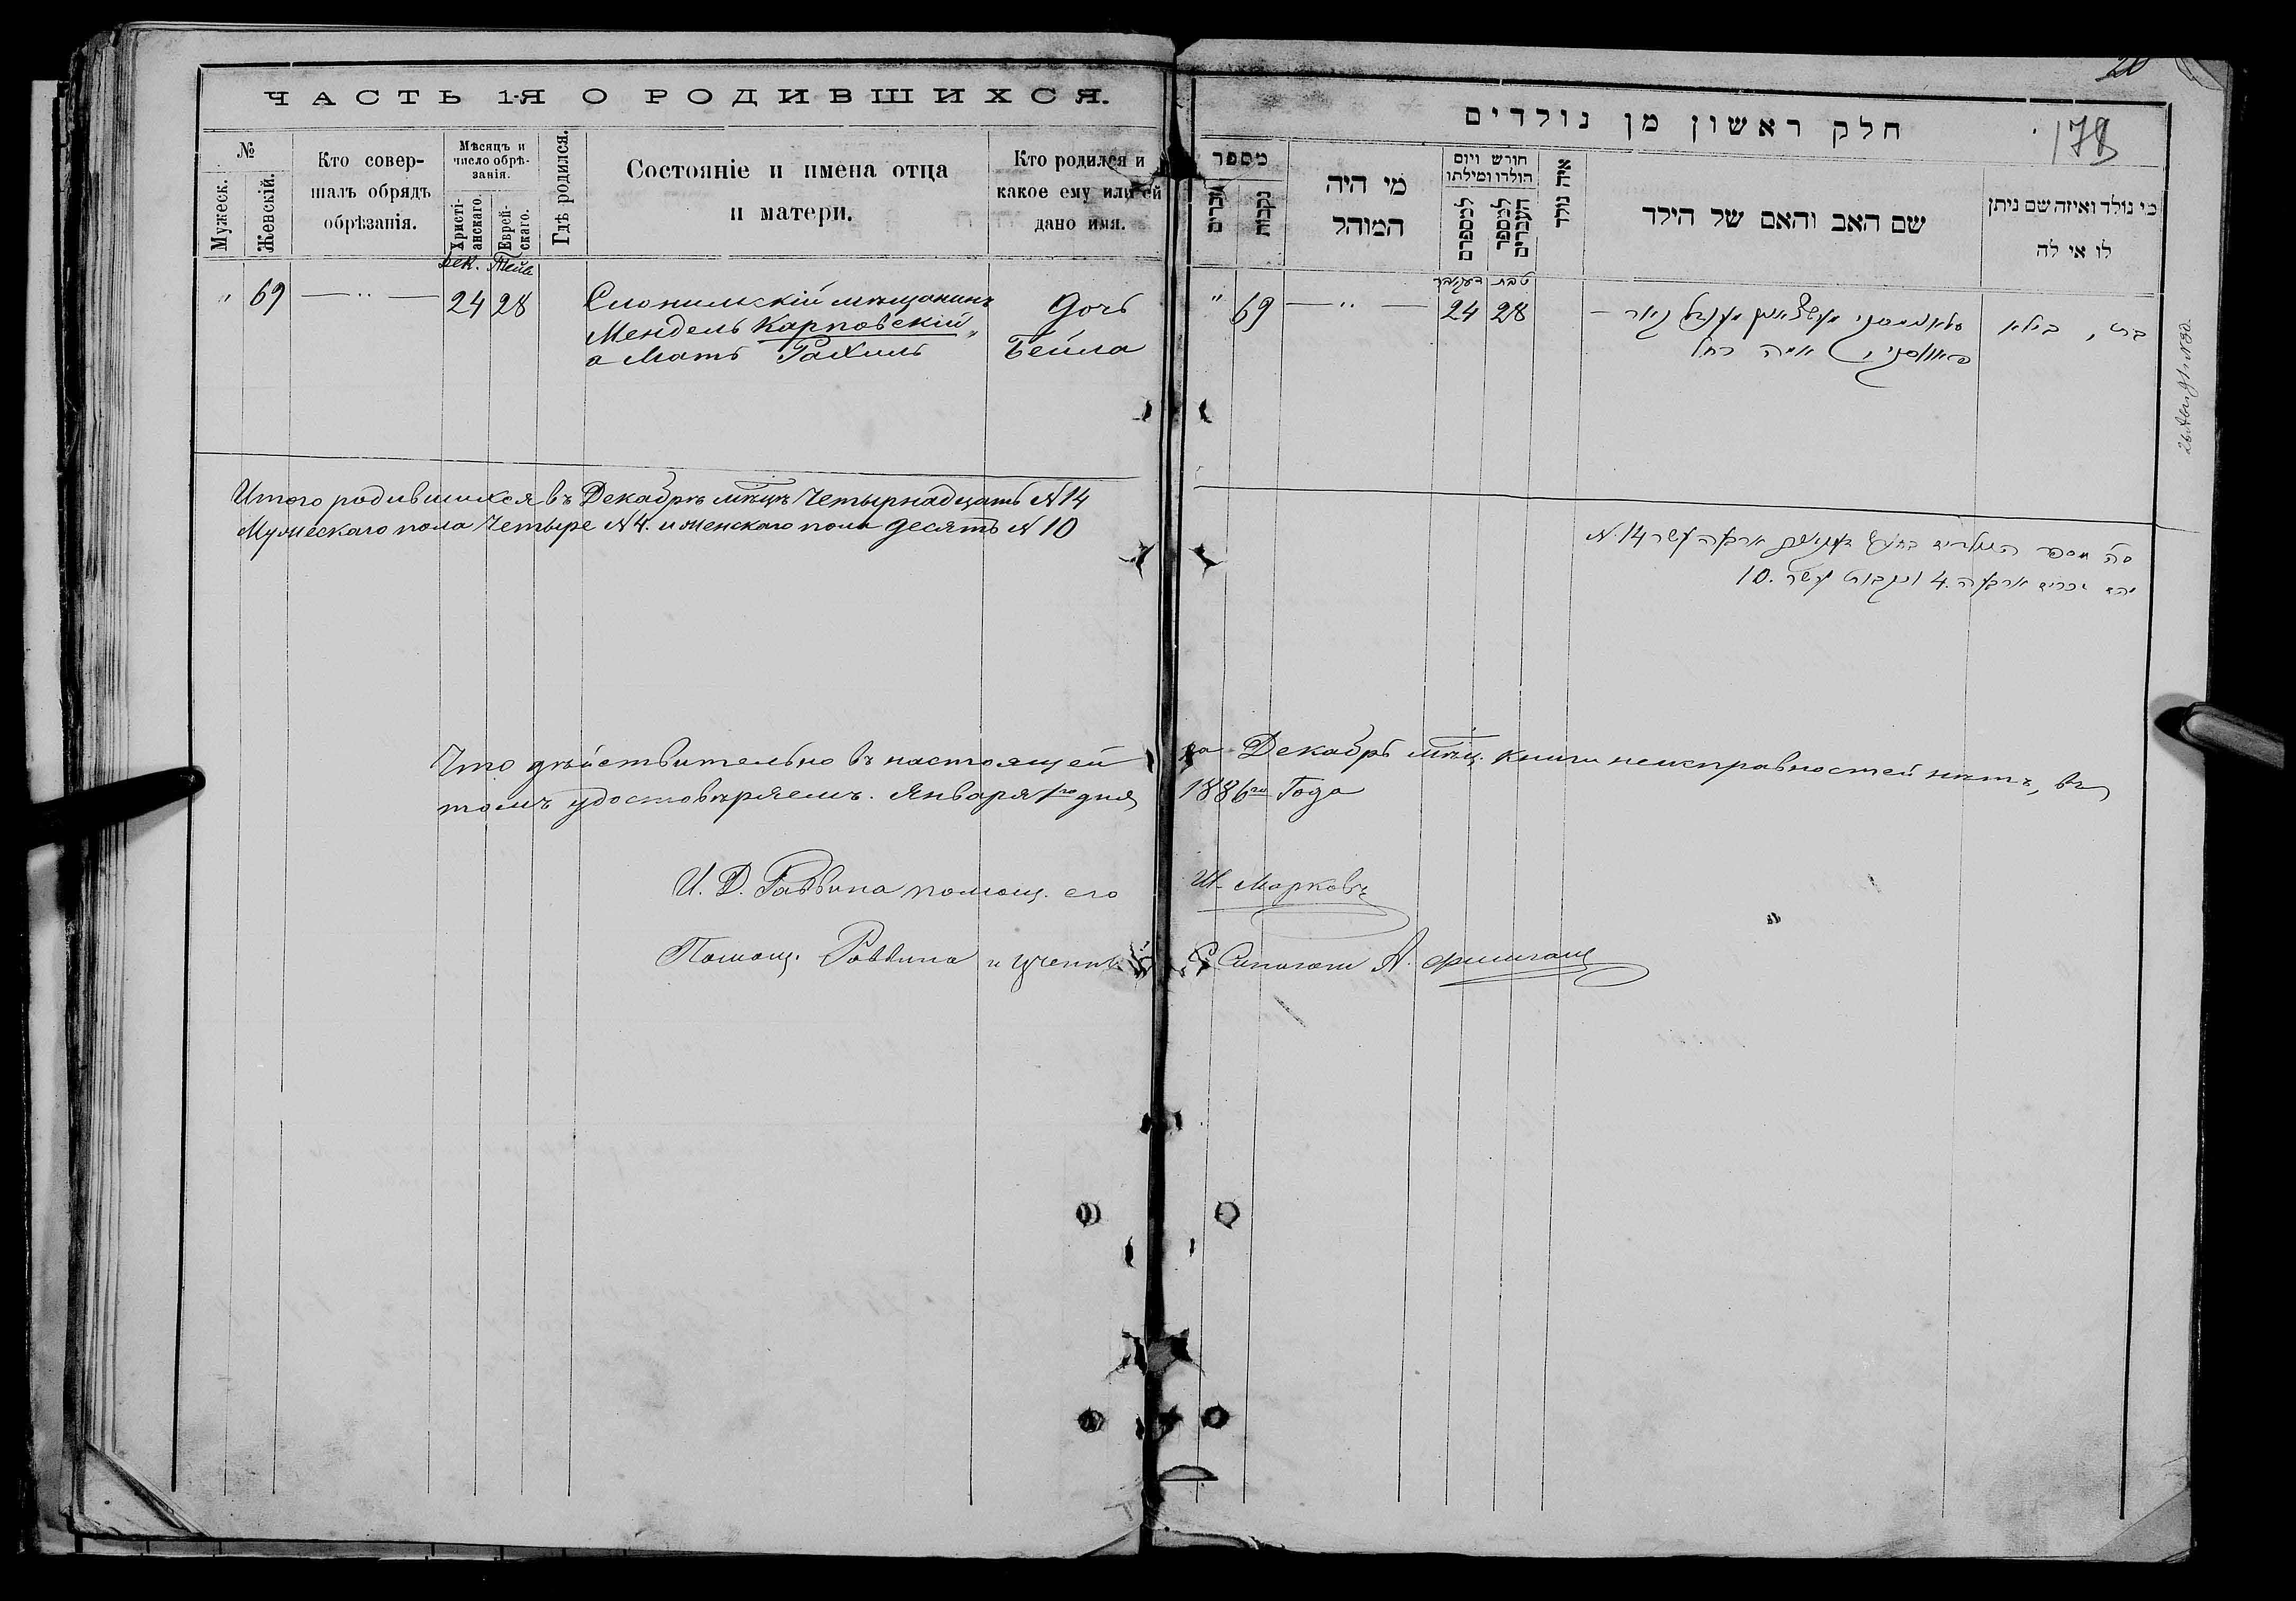 ЧАСТЬ 1-Я О РОДИВШИХСЯ.
№
Мужеск.
Женскій.
Кто совер-
шалъ обрядъ
обрѣзанія.
Мѣсяцъ и
число обрѣ-
занія.
Христі-
анскаго.
Еврей-
скаго.
Гдѣ родился.
Состояніе и имена отца
и матери.
Кто родился и
какое ему или ей
дано имя.
Дек. Тейв
" 69 — " — 24 28
Слонимскій мѣщанинъ
Мендель Карповскій "
а Мать Рахиль
Дочь
Бейла
Итого родившихся въ Декабрѣ мѣцѣ Четырнадцать N 14
Мужескаго пола Четыре N 4. и женскаго пола десять N 10
Что дѣйствительно въ настоящей за Декабрь мѣц. книги неисправностей нѣтъ, въ
томъ удостовѣряемъ. Января 1го дня 1886го Года
И. Д. Раввина помощ. его Ш. Марковъ
Помощ. Раввина и
20
178
חלק ראשון מן נולדים
מספר
זכרים
נקבות
מי היה
המוהל
חורש ויום
הולדו ומילתו
למספרם
למספר
העברים
איה נולד
שם האב והאם של הילד
מי נולד ואיזה שם ניתן
לו או לה
טבת
" 69 — " — 24 28
אמה רחל
בת, בילא
N. 14
זכרים ארבעה 4. ונקבות עשר 10.